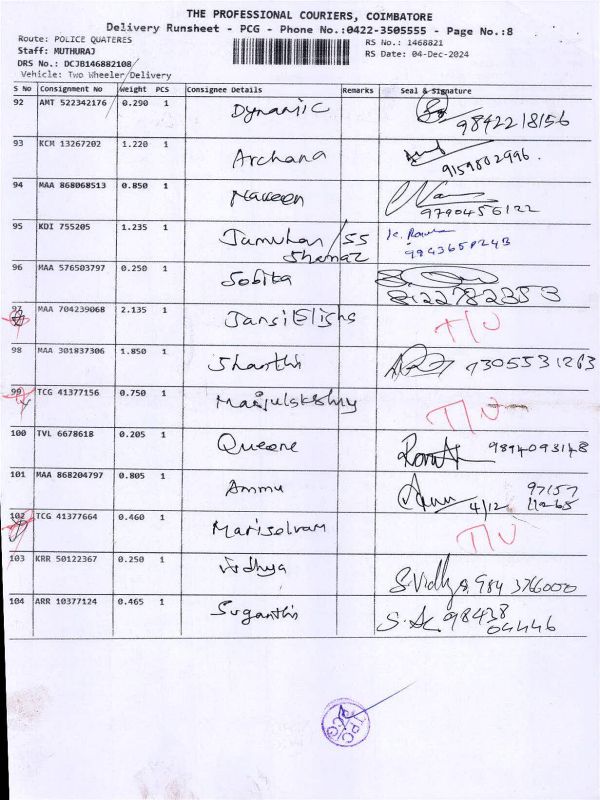 THE PROFESSIONAL COURIERS, COIMBATORE
Delivery Runsheet - PCG - Phone No.:0422-3505555 - Page No.:8
Route: POLICE QUATERES RS No.: 1468821
Staff: MUTHURAJ RS Date: 04-Dec-2024
DRS No.: DCJB146882108
Vehicle: Two Wheeler/Delivery
S No Consignment No Weight PCS Consignee Details Remarks Seal & Signature
92 AMT 522342176 0.290 1 Dynamic 9842218156
93 KCM 13267202 1.220 1 Archana 9159802996.
94 MAA 868068513 0.850 1 Naveen 9790456122
95 KDI 755205 1.235 1
96 MAA 576503797 0.250 1 Sobita 8122782353
97 MAA 704239068 2.135 1 T/U
98 MAA 301837306 1.850 1 Shanthi 9305531263
99 TCG 41377156 0.750 1 T/U
100 TVL 6678618 0.205 1 Queene 9894093148
101 MAA 868204797 0.805 1 Ammu 97157
4/12 11265
102 TCG 41377664 0.460 1 Mariselvam T/U
103 KRR 50122367 0.250 1 Vidhya S.Vidhya 984 3766000
104 ARR 10377124 0.465 1 Suganthi 98438
04446
TPC
PCG